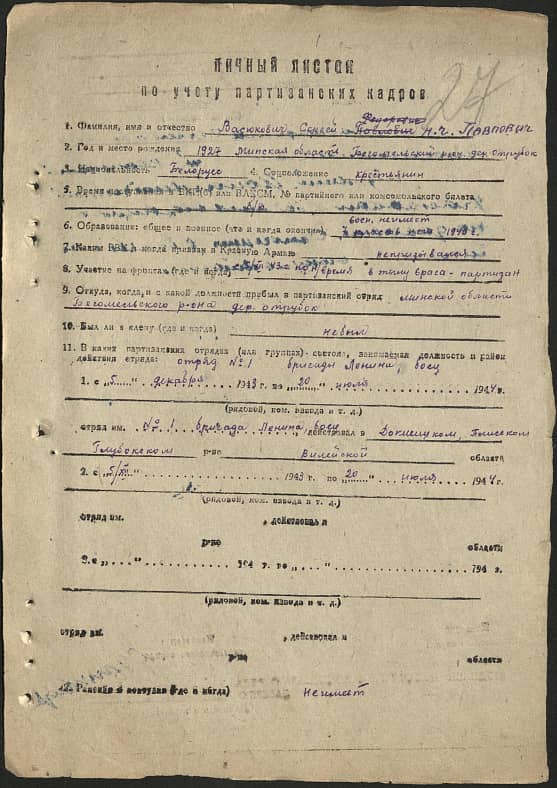 27
ЛИЧНЫЙ ЛИСТОК
по учету партизанских кадров
Федорович
1. Фамилия, имя и отчество Васюкович Сергей Павлович Н.Ч. ПАВЛОВИЧ
2. Год и место рождения 1927 Минская область Бегомельский район дер. Отрубок
3. Национальность Белорусс 4. Соцположение крестьянин
5. Время вступления в ВКП(б) или ВЛКСМ, № партийного или комсомольского билета
б/п
воен. неимеет
6. Образование: общее и военное (что и когда окончил)
7. Каким РВК и когда призван в Красную Армию непризывался
8. Участие на фронтах (где и когда) 43 с по н/время в тылу врага - партизан
9. Откуда, когда и с какой должности прибыл в партизанский отряд Минской области
Бегомельского р-она дер. Отрубок
10. Был ли в плену (где и когда) небыл
11. В каких партизанских отрядах (или группах) состоял, занимаемая должность и район
действия отряда: отряд № 1 бригады Ленина, боец
1. с „5....." декабря 1943 г. по „20......" июля 1944 г.
(рядовой, ком. взвода и т. д.)
отряд им. № 1 бригада Ленина, боец действовал в Докшицком, Плисском
Глубокском р-не Вилейской области
2. с „5/XII...." 1943 г. по 20....... июля 1944 г.
(рядовой, ком. взвода и т. д.)
отряд им. , действовал в
р-не области
3. с „...." 194 г. по „....." 194 г.
(рядовой, ком. взвода и т. д.)
отряд им. , действовал в
р-не области
12. Ранения и контузии (где и когда) неимеет